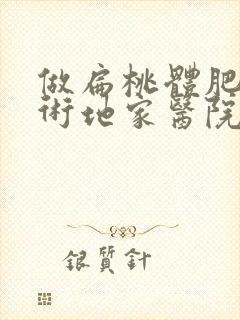 做扁桃體肥
術地家醫院
銀質針